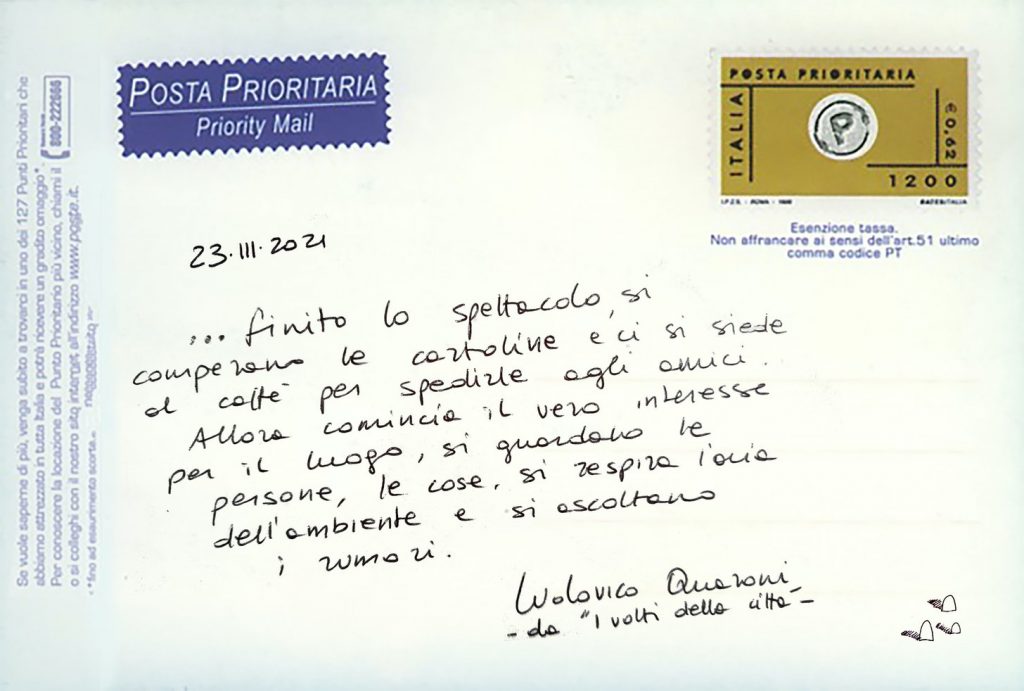 POSTA PRIORITARIA
Priority Mail
POSTA PRIORITARIA
ITALIA
€ 0,62
1200
I.P.Z.S. - ROMA - 1999
Esenzione tassa.
Non affrancare ai sensi dell'art.51 ultimo
comma codice PT
Se vuole saperne di più, venga subito a trovarci in uno dei 127 Punti Prioritari che
abbiamo attrezzato in tutta Italia e potrà ricevere un gradito omaggio*.
Per conoscere la locazione del Punto Prioritario più vicino, chiami il
800-222666
o si colleghi con il nostro sito internet all'indirizzo www.poste.it.
*fino ad esaurimento scorte
23.III.2021
... finito lo spettacolo, si
comperano le cartoline e ci si siede
al caffè per spedirle agli amici.
Allora comincia il vero interesse
per il luogo, si guardano le
persone, le cose, si respira l'aria
dell'ambiente e si ascoltano
i rumori.
Ludovico Quaroni
- da "I volti della città -